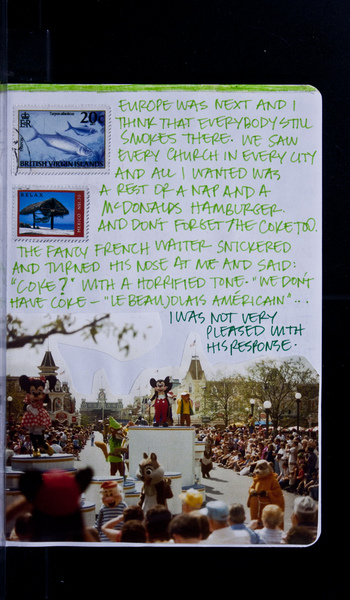 EUROPE WAS NEXT AND I
THINK THAT EVERYBODY STILL
SMOKES THERE. WE SAW
EVERY CHURCH IN EVERY CITY
AND ALL I WANTED WAS
A REST OR A NAP AND A
McDONALDS HAMBURGER.
AND DON'T FORGET THE COKE TOO.
THE FANCY FRENCH WAITER SNICKERED
AND TURNED HIS NOSE AT ME AND SAID:
"COKE?" WITH A HORRIFIED TONE. "WE DON'T
HAVE COKE – "LE BEAUJOLAIS AMÉRICAIN"...
I WAS NOT VERY
PLEASED WITH
HIS RESPONSE.
20c
BRITISH VIRGIN ISLANDS
MEXICO